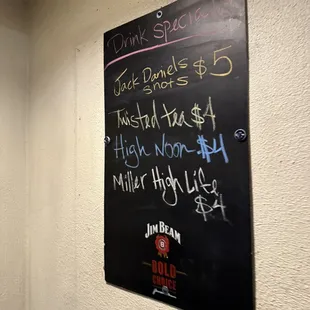 Drink Specials
Jack Daniels $5
shots
Twisted tea $4
High Noon $4
Miller High Life
$4
JIM BEAM
B
BOLD
CHOICE